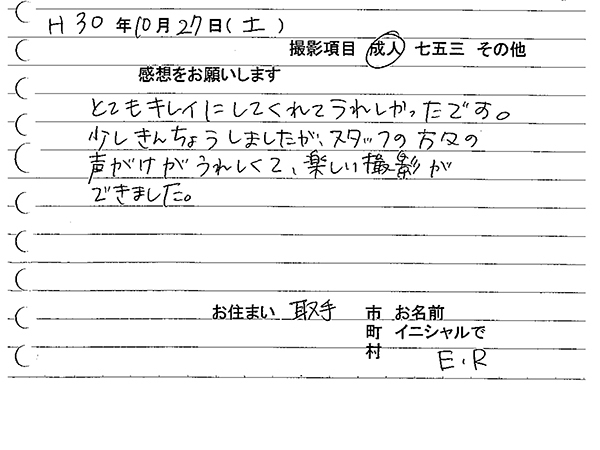 H 30 年 10 月 27 日 ( 土 )
撮影項目 成人 七五三 その他
感想をお願いします
とてもキレイにしてくれてうれしかったです。
少しきんちょうしましたが、スタッフの方々の
声がけがうれしくて、楽しい撮影が
できました。
お住まい 取手 市 お名前
町 イニシャルで
村
E.R